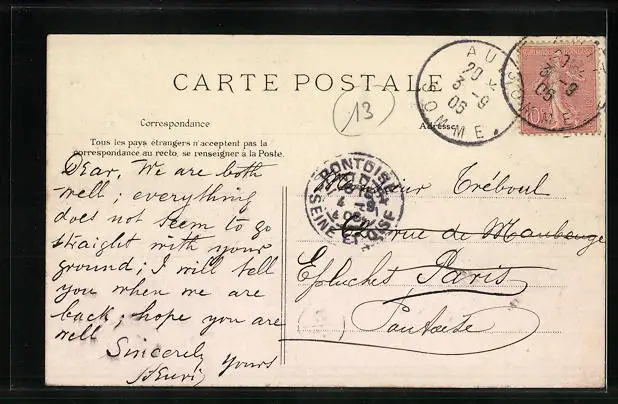 CARTE POSTALE
Correspondance
Tous les pays étrangers n'acceptent pas la
correspondance au recto, se renseigner à la Poste.
Adresse
13
AU
20
3 - 9
06
SOMME
10
PONTOISE
SEINE ET OISE
Dear, We are both
well; everything
does not seem to go
straight with your
ground; I will tell
you when we are
back; hope you are
well
Sincerely yours
Henri
Monsieur Tréboul
rue de Maubeuge
Epluches Paris
Pontoise